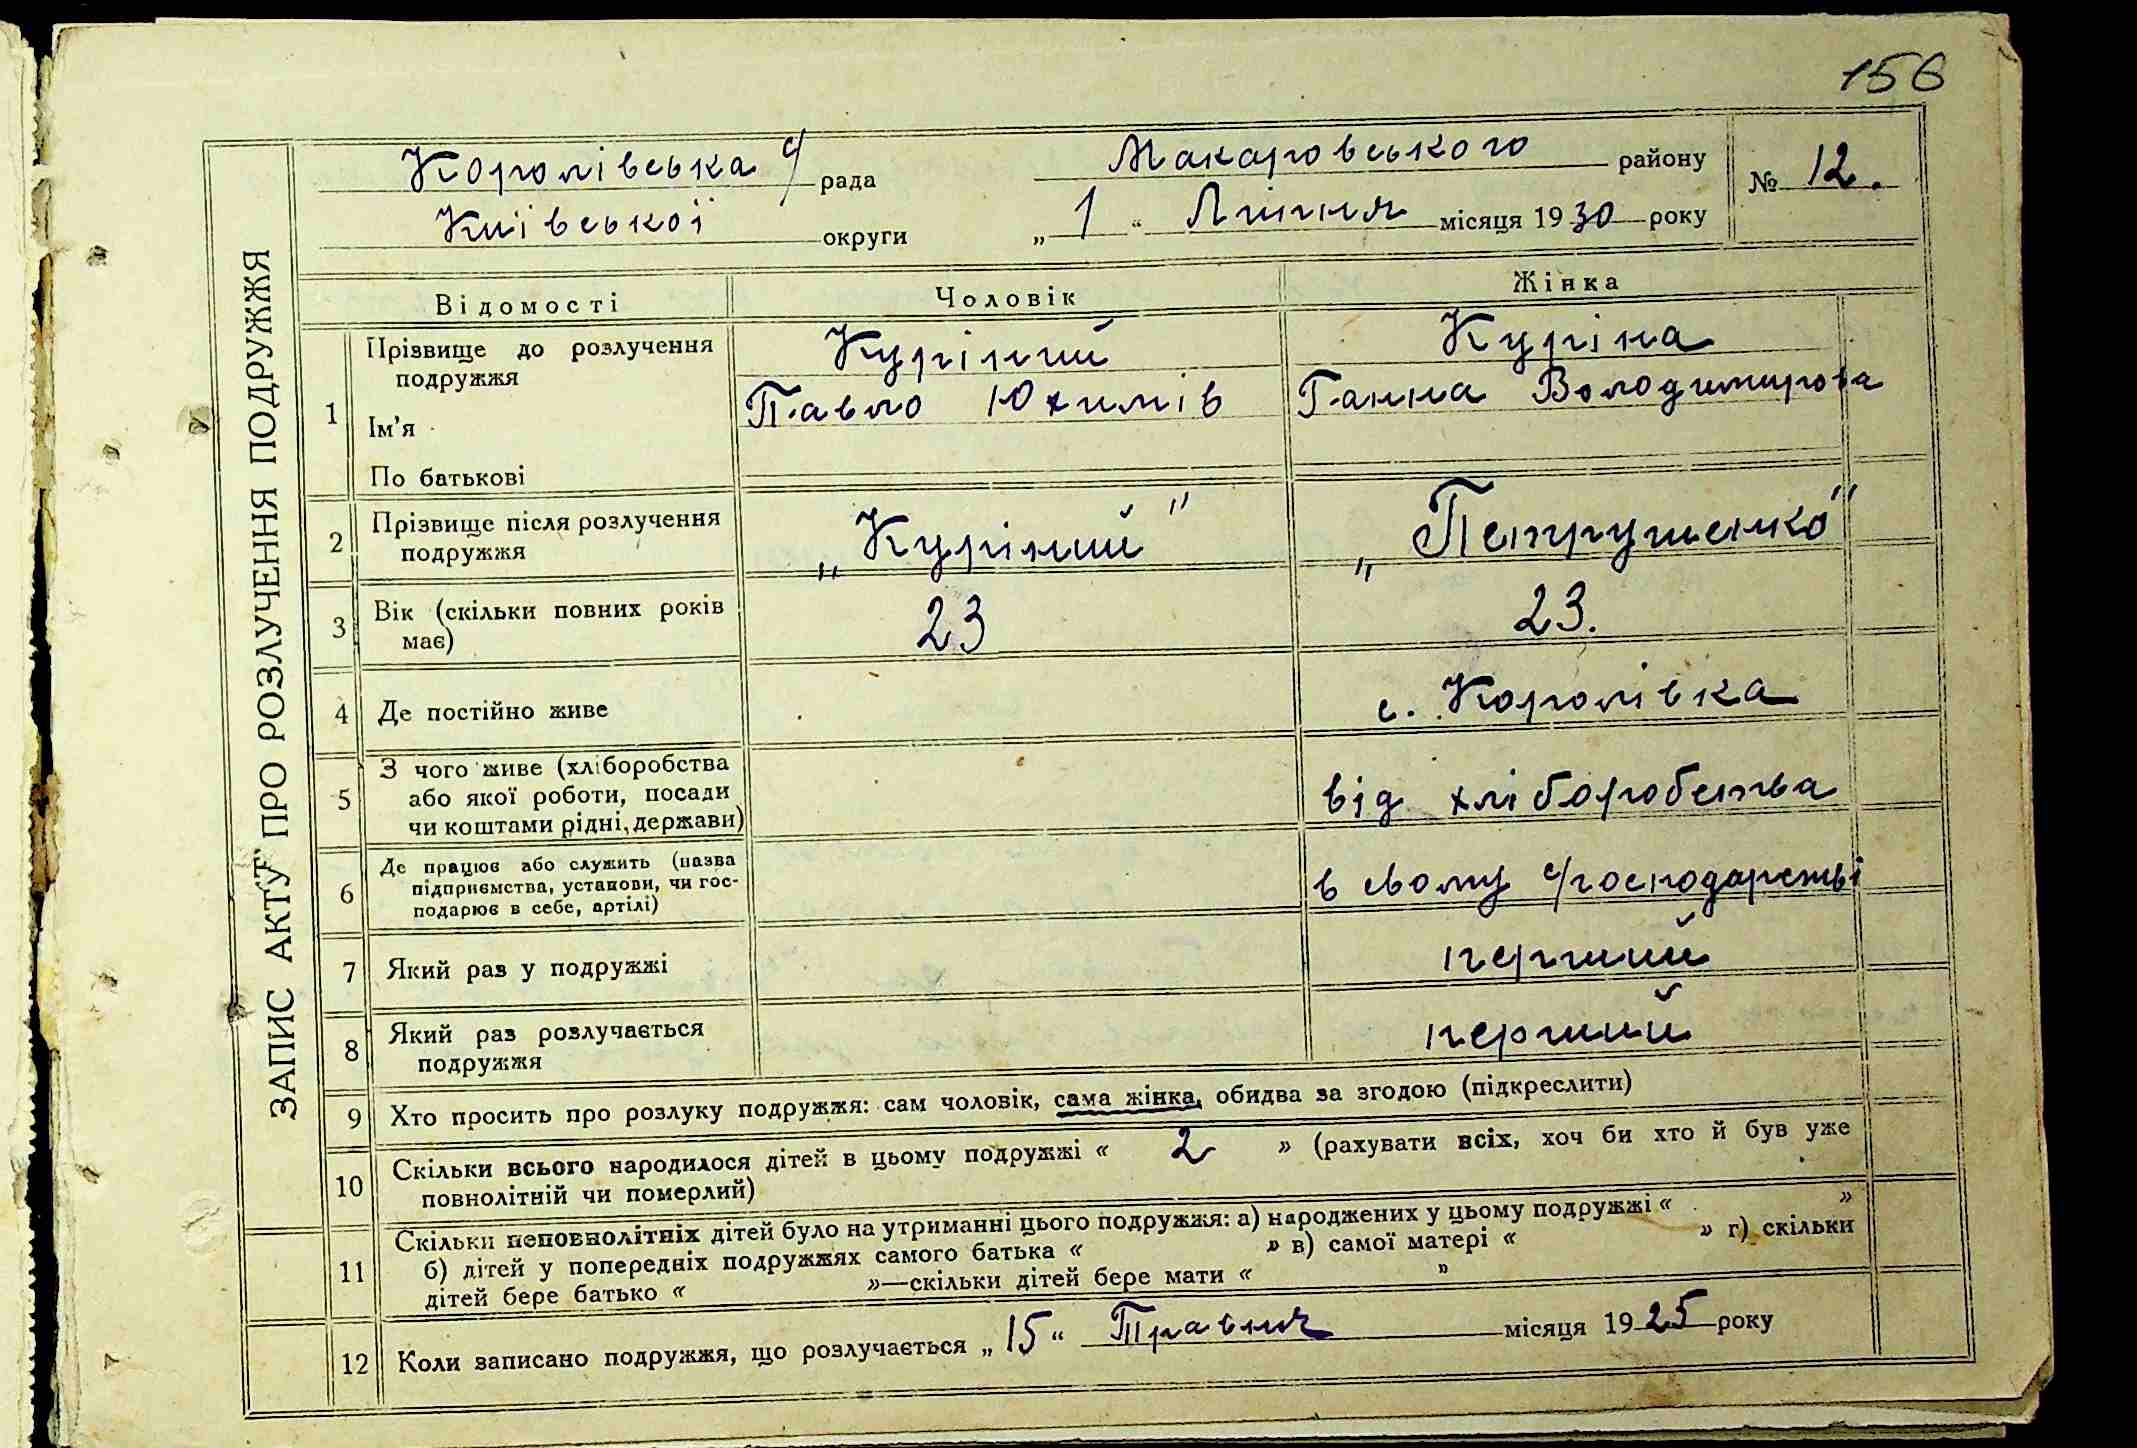 156
ЗАПИС АКТУ ПРО РОЗЛУЧЕННЯ ПОДРУЖЖЯ
Королівська с/ рада Макаровського району № 12.
Київської округи „ 1 “ Липня місяця 1930 року
Відомості Чоловік Жінка
1 Прізвище до розлучення подружжя Курінний Куріна
Ім'я Павло Юхимів Ганна Володимирова
По батькові
2 Прізвище після розлучення подружжя „Курінний" „Петрушенко"
3 Вік (скільки повних років має) 23 23.
4 Де постійно живе с. Королівка
5 З чого живе (хліборобства
або якої роботи, посади
чи коштами рідні, держави) від хліборобства
6 Де працює або служить (назва
підприємства, установи, чи гос-
подарює в себе, артілі) в свому с/господарстві
7 Який раз у подружжі перший
8 Який раз розлучається
подружжя перший
9 Хто просить про розлуку подружжя: сам чоловік, сама жінка, обидва за згодою (підкреслити)
10 Скільки всього народилося дітей в цьому подружжі « 2 » (рахувати всіх, хоч би хто й був уже
повнолітній чи померлий)
11 Скільки неповнолітніх дітей було на утриманні цього подружжя: а) народжених у цьому подружжі « »
б) дітей у попередніх подружжях самого батька « » в) самої матері « » г) скільки
дітей бере батько « »—скільки дітей бере мати « »
12 Коли записано подружжя, що розлучається „ 15 “ Травня місяця 1925 року